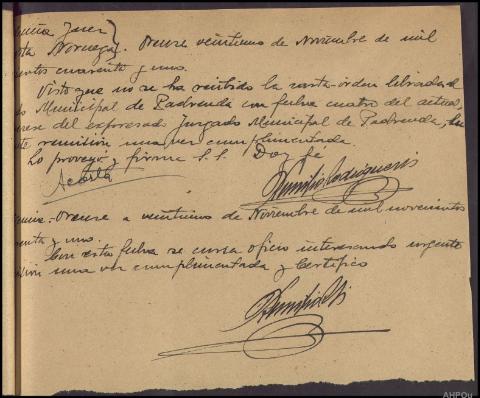 Juez
Noruega}. Orense veintiuno de Noviembre de mil
cuarenta y uno.
Visto que no se ha recibido la carta-orden librada al
Municipal de Padrenda con fecha cuatro del actual,
del expresado Juzgado Municipal de Padrenda, su
remisión una vez cumplimentada.
Lo proveyó y firma S.S. Doy fe
Acosta
Orense a veintiuno de Noviembre de mil novecientos
y uno.
Con esta fecha se cursa oficio interesando urgente
una vez cumplimentada y Certifico
AHPOu